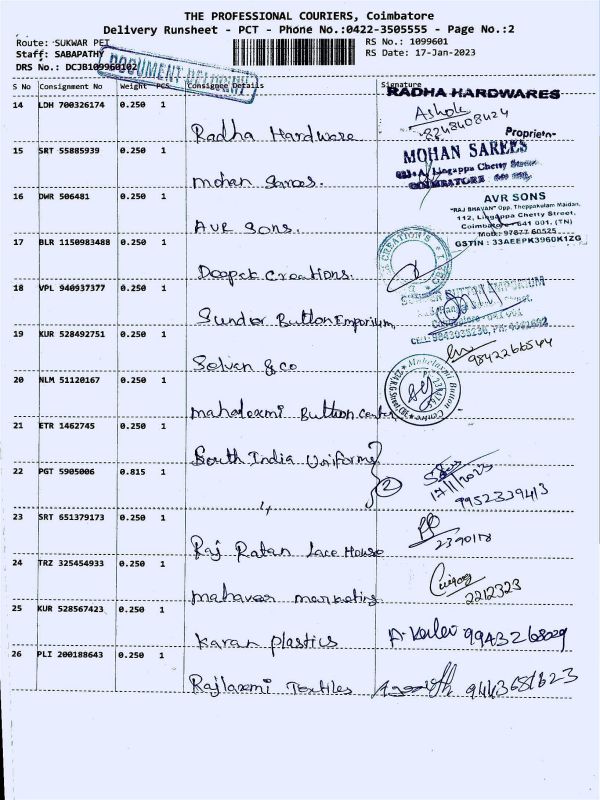 THE PROFESSIONAL COURIERS, Coimbatore
Delivery Runsheet - PCT - Phone No.:0422-3505555 - Page No.:2
Route: SUKWAR PET
RS No.: 1099601
Staff: SABAPATHY
RS Date: 17-Jan-2023
DRS No.: DCJB109960102
DOCUMENT
S No Consignment No Weight PCS Consignee Details Signature
14 LDH 700326174 0.250 1
RADHA HARDWARES
Ashok
8248408424
Radha Hardware
Proprietor
15 SRT 55885939 0.250 1
MOHAN SAREES
Lingappa Chetty Street
COIMBATORE
mohan Sarees.
16 DWR 506481 0.250 1
AVR SONS
"RAJ BHAVAN" Opp. Theppakulam Maidan,
112, Lingappa Chetty Street,
Coimbatore - 641 001. (TN)
Mob.: 97877 60525
GSTIN : 33AEEPK3960K1ZG
AVR Sons.
17 BLR 1150983488 0.250 1
CREATION'S
Deepak Creations.
18 VPL 940937377 0.250 1
SUNDER BUTTON EMPORIUM
Sunder Button Emporium
19 KUR 528492751 0.250 1
9842266544
Selvan & Co
20 NLM 51120167 0.250 1
Mahalaxmi Button Centre
mahalaxmi Button Center
21 ETR 1462745 0.250 1
South India Uniforms
22 PGT 5905006 0.815 1
2
17/1/2023
9952339413
23 SRT 651379173 0.250 1
2390118
Raj Ratan Lace House
24 TRZ 325454933 0.250 1
2212323
mahaveer marketing
25 KUR 528567423 0.250 1
Karan plastics
9943268029
26 PLI 200188643 0.250 1
Rajlaxmi Textiles
9443681623